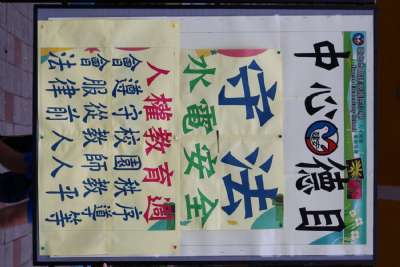 中心德目
守法
水電安全
人權教育週
會遵守校園秩序
會服從教師教導
法律前人人平等